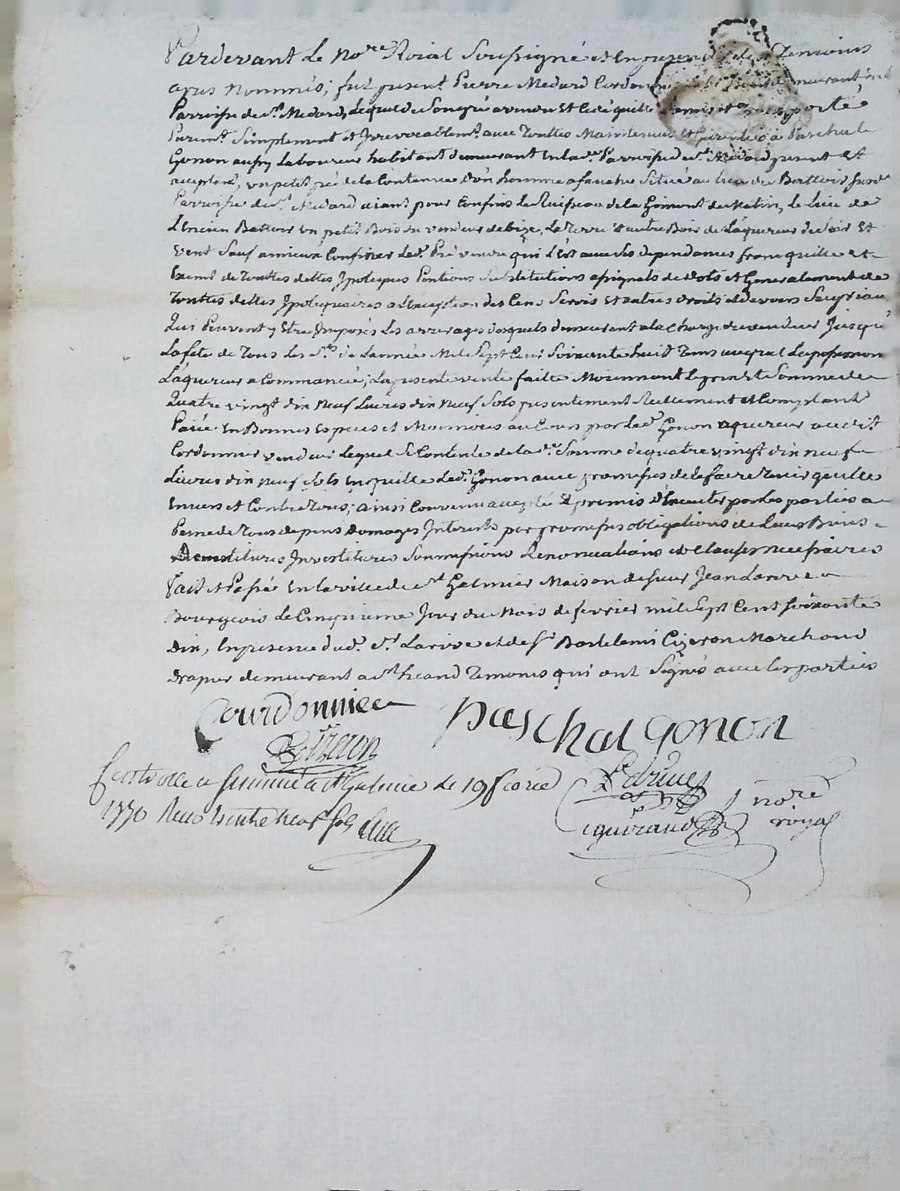 Pardevant Le No.re Roial Soussigné et En presence des Temoins
apres Nommés; fut present Pierre Medard Cordonnier demeurant En la
Parroisse de S.t Medard, Lequel de Son gré a vendu Et Cedé quitté Remis et Transporté
Purem.t Simplement et Irrevocablem.t avec Touttes Maintenues Et Garanties a Paschal
Gonon aussy Laboureur habitant demeurant En lad.e Parroisse de S.t Médard present Et
acceptant, un petit pré de la Contenue D'un homme a faucher Situé au Lieu du Battoir susd.e
Parroisse de S.t Medard aiant pour Confins le Ruisseau de la Gimont de Matin, le bié de
L'encien Battoir un petit Bois du vendeur de bize, La Terre Et autre Bois de L'aquereur du Soir Et
vent Sauf amieux Confiner Led.t Pré vendu qui L'Est avec Ses dependances franc quitte et
Exempt de Touttes dettes Ypoteques Pentions Substitutions asignats de Dots et Generalement de
Touttes dettes Ypotequaires a L'exception des Cens Servis Et autres Droits et Devoirs Seigriaux
Qui Peuvent y Etre Imposés Les arrerages Desquels demeurant a la Charge du vendeur Jusqu'a
La fete de Tous Les S.ts de L'année Mil Sept Cent Soixante huit Tems auquel La possession
L'aquereur a Commancée; La presente vente faitte Moiennant le prix Et Somme de
Quatre vingt dix Neuf Livres dix Neuf Sols presentement Reellement et Comptant
Paiée En Bonnes Especes et Monnoies au Cours par led.t Gonon aquereur audit
Cordonnier vendeur Lequel Se Contente de lad.e Somme de quatre vingt dix neuf
Livres dix Neuf Sols En quitte led.t Gonon avec promesses de le faire Tenir quitte
Envers et Contre Tous; ainsi Convenu accepté Et promis D'Executer par Les parties a
Peine de Tous depens Domages Interets par promesses obligations de Leurs Biens
Demetitures Investitures Soumissions Renonciations et Clauses Necessaires
Fait et Passé En la ville de S.t Galmier Maison de Sieur Jean Larive
Bourgeois Le Cinquieme Jour du Mois de fevrier mil Sept Cent Soixante
Dix, En presence dud.t S.r Larive et de S.r Bartelemi Cizeron Marchand
Drapier demeurant a S.t heand Temoins qui ont Signés avec les parties
Courdonnier
paschal Gonon
Cizeron
Larive
Controlle a St Galmier le 19 fevrier
1770 Recu trente neuf sols
nore
royal